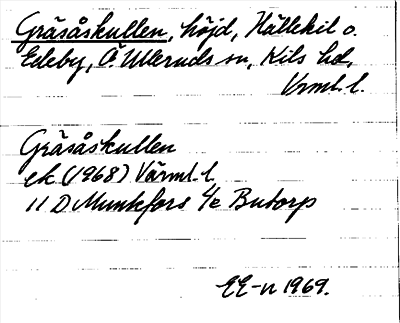 Gräsåskullen, höjd, Hällekil o.
Edeby, Ö. Ulleruds sn, Kils hd,
Vrml. l.
Gräsåskullen
ek. (1968) Värml. l.
11 D Munkfors 4e Butorp
EE-n 1969.